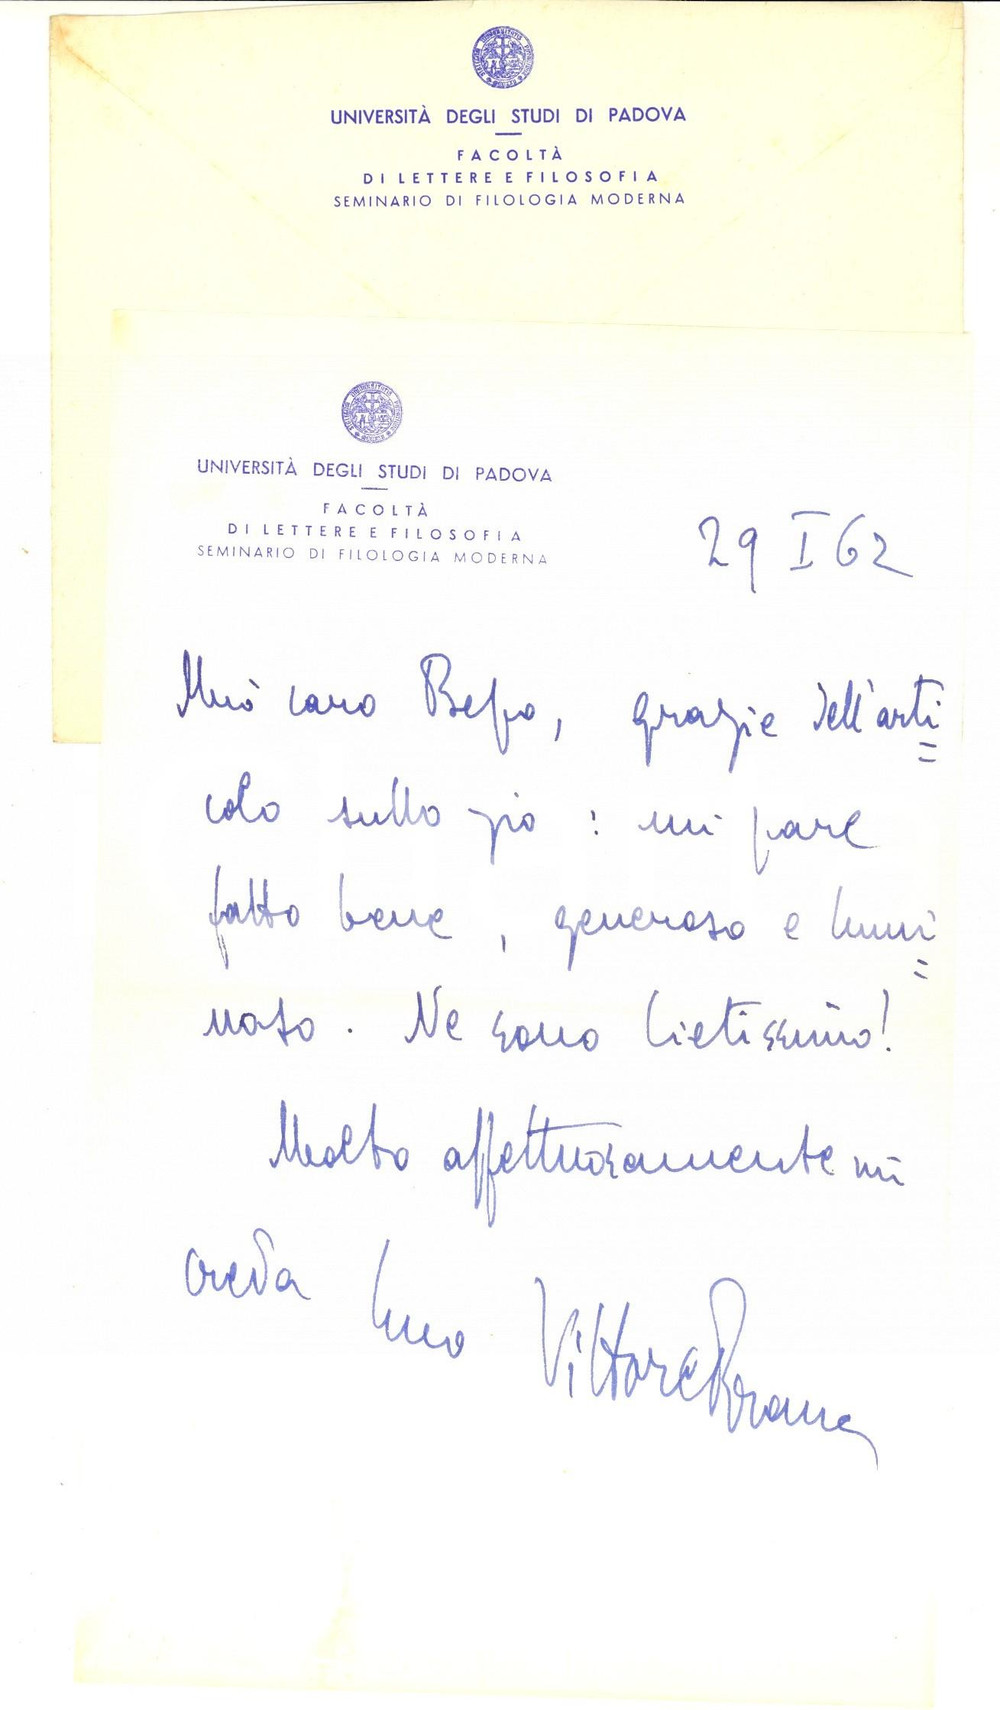 UNIVERSITÀ DEGLI STUDI DI PADOVA
FACOLTÀ
DI LETTERE E FILOSOFIA
SEMINARIO DI FILOLOGIA MODERNA
UNIVERSITÀ DEGLI STUDI DI PADOVA
FACOLTÀ
DI LETTERE E FILOSOFIA
SEMINARIO DI FILOLOGIA MODERNA
29 I 62
Mio caro Bepo, grazie dell'arti=
colo sullo zio : mi pare
fatto bene, generoso e lumi=
noso. Ne sono lietissimo!
Molto affettuosamente mi
creda suo Vittore Branca